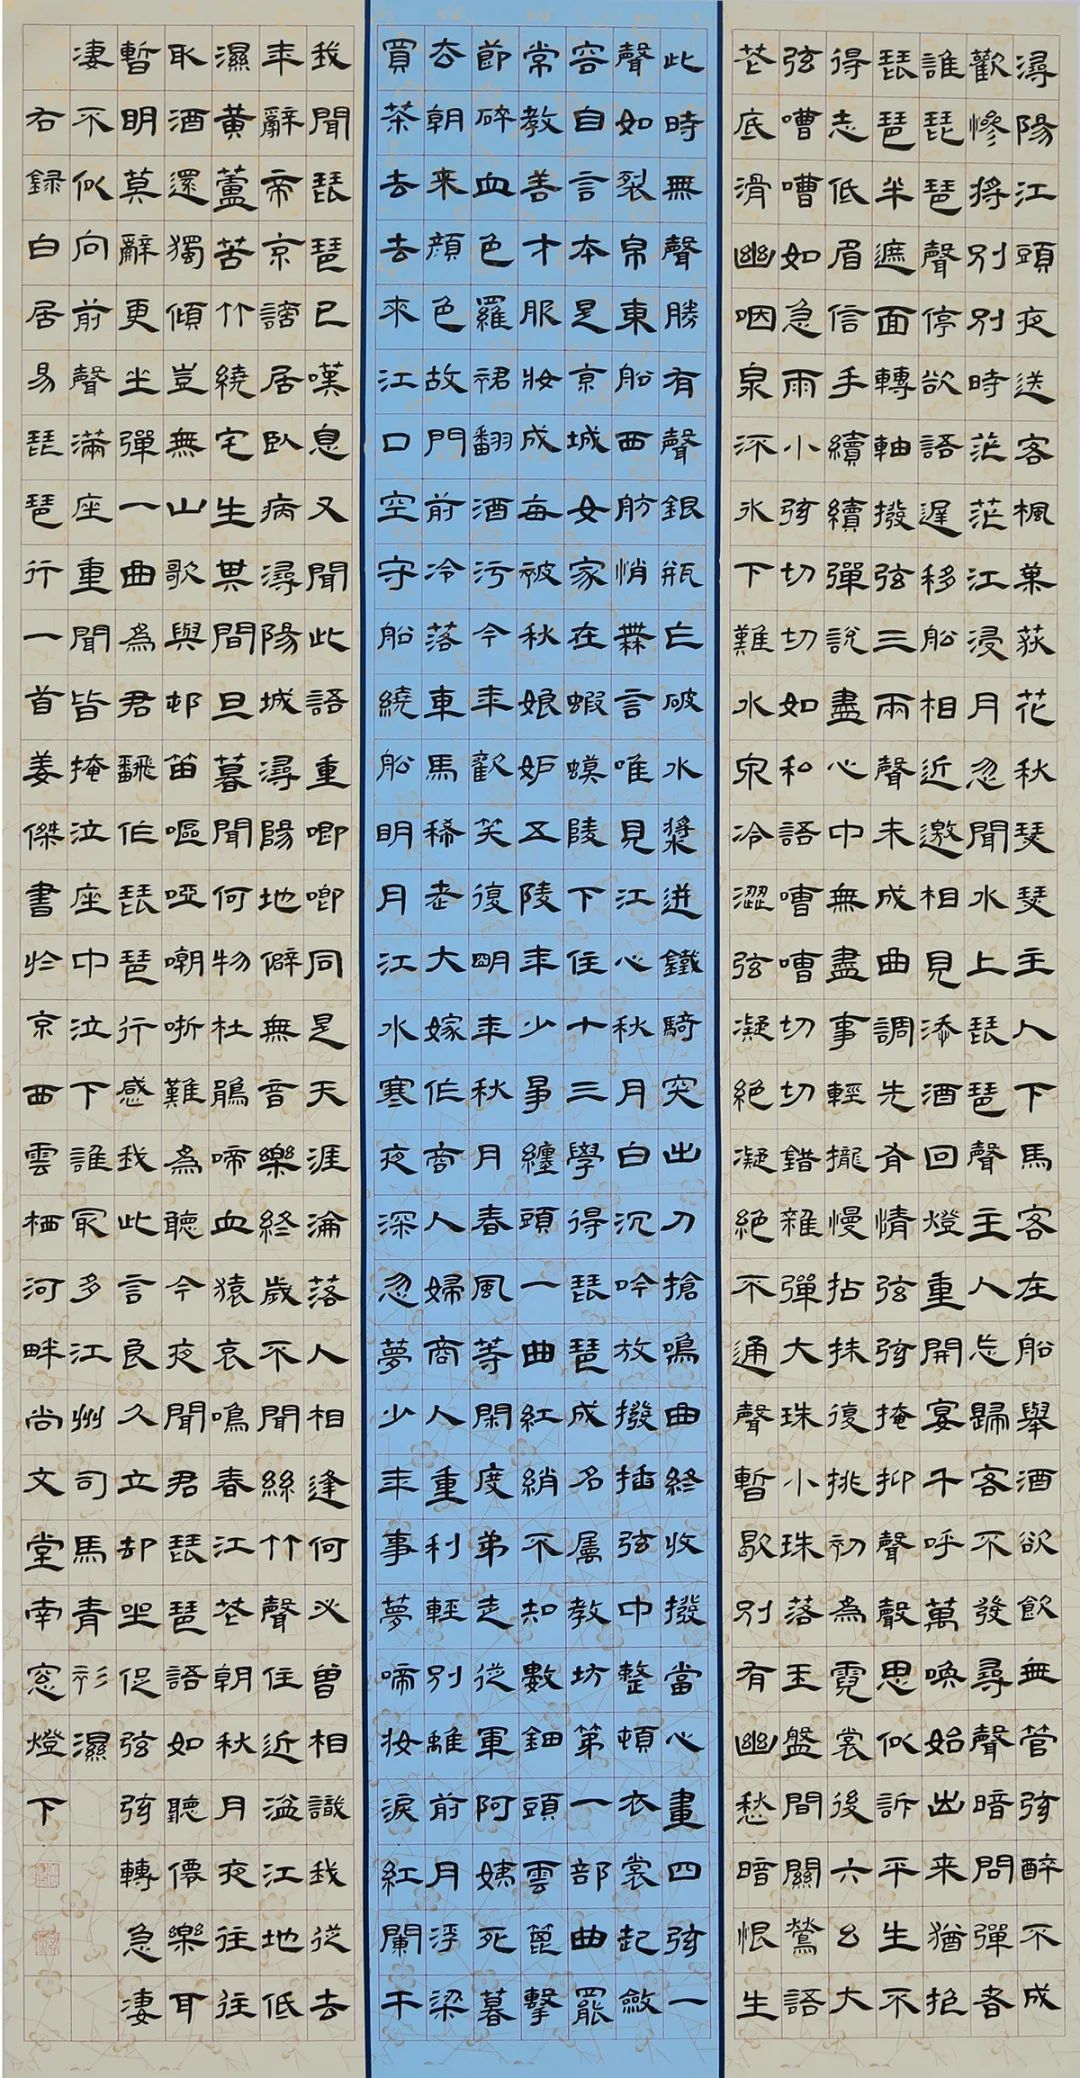 潯陽江頭夜送客楓葉荻花秋瑟瑟主人下馬客在船舉酒欲飲無管弦醉不成
歡慘將別別時茫茫江浸月忽聞水上琵琶聲主人忘歸客不發尋聲暗問彈者
誰琵琶聲停欲語遲移船相近邀相見添酒回燈重開宴千呼萬喚始出来猶抱
琵琶半遮面轉軸撥弦三兩聲未成曲調先有情弦弦掩抑聲聲思似訴平生不
得志低眉信手續續彈說盡心中無盡事輕攏慢拈抹復挑初為霓裳後六幺大
弦嘈嘈如急雨小弦切切如私語嘈嘈切切錯雜彈大珠小珠落玉盤間關鶯語
花底滑幽咽泉流氷下難水泉冷澀弦凝絕凝絕不通聲暫歇別有幽愁暗恨生
此時無聲勝有聲銀瓶乍破水漿迸鐵騎突出刀搶鳴曲終收撥當心畫四弦一
聲如裂帛東船西舫悄無言唯見江心秋月白沉吟放撥插弦中整頓衣裳起斂
容自言本是京城女家在蝦蟆陵下住十三學得琵琶成名屬教坊第一部曲罷
常教善才服妝成每被秋娘妒五陵年少爭纏頭一曲紅綃不知數鈿頭雲篦擊
節碎血色羅裙翻酒污今年歡笑復明年秋月春風等閑度弟走從軍阿姨死暮
去朝来顏色故門前冷落車馬稀老大嫁作商人婦商人重利輕別離前月浮梁
買茶去去來江口空守船繞船明月江水寒夜深忽夢少年事夢啼妝淚紅闌干
我聞琵琶已嘆息又聞此語重唧唧同是天涯淪落人相逢何必曾相識我從去
年辭帝京謫居臥病潯陽城潯陽地僻無音樂終歲不聞絲竹聲住近湓江地低
濕黃蘆苦竹繞宅生其間旦暮聞何物杜鵑啼血猿哀鳴春江花朝秋月夜往往
取酒還獨傾豈無山歌與邨笛嘔啞嘲哳難為聽今夜聞君琵琶語如聽僊樂耳
暫明莫辭更坐彈一曲為君翻作琵琶行感我此言良久立却坐促弦弦轉急凄
凄不似向前聲滿座重聞皆掩泣座中泣下誰最多江州司馬青衫濕
右録白居易琵琶行一首姜傑書於京西雲栖河畔尚文堂南窓燈下